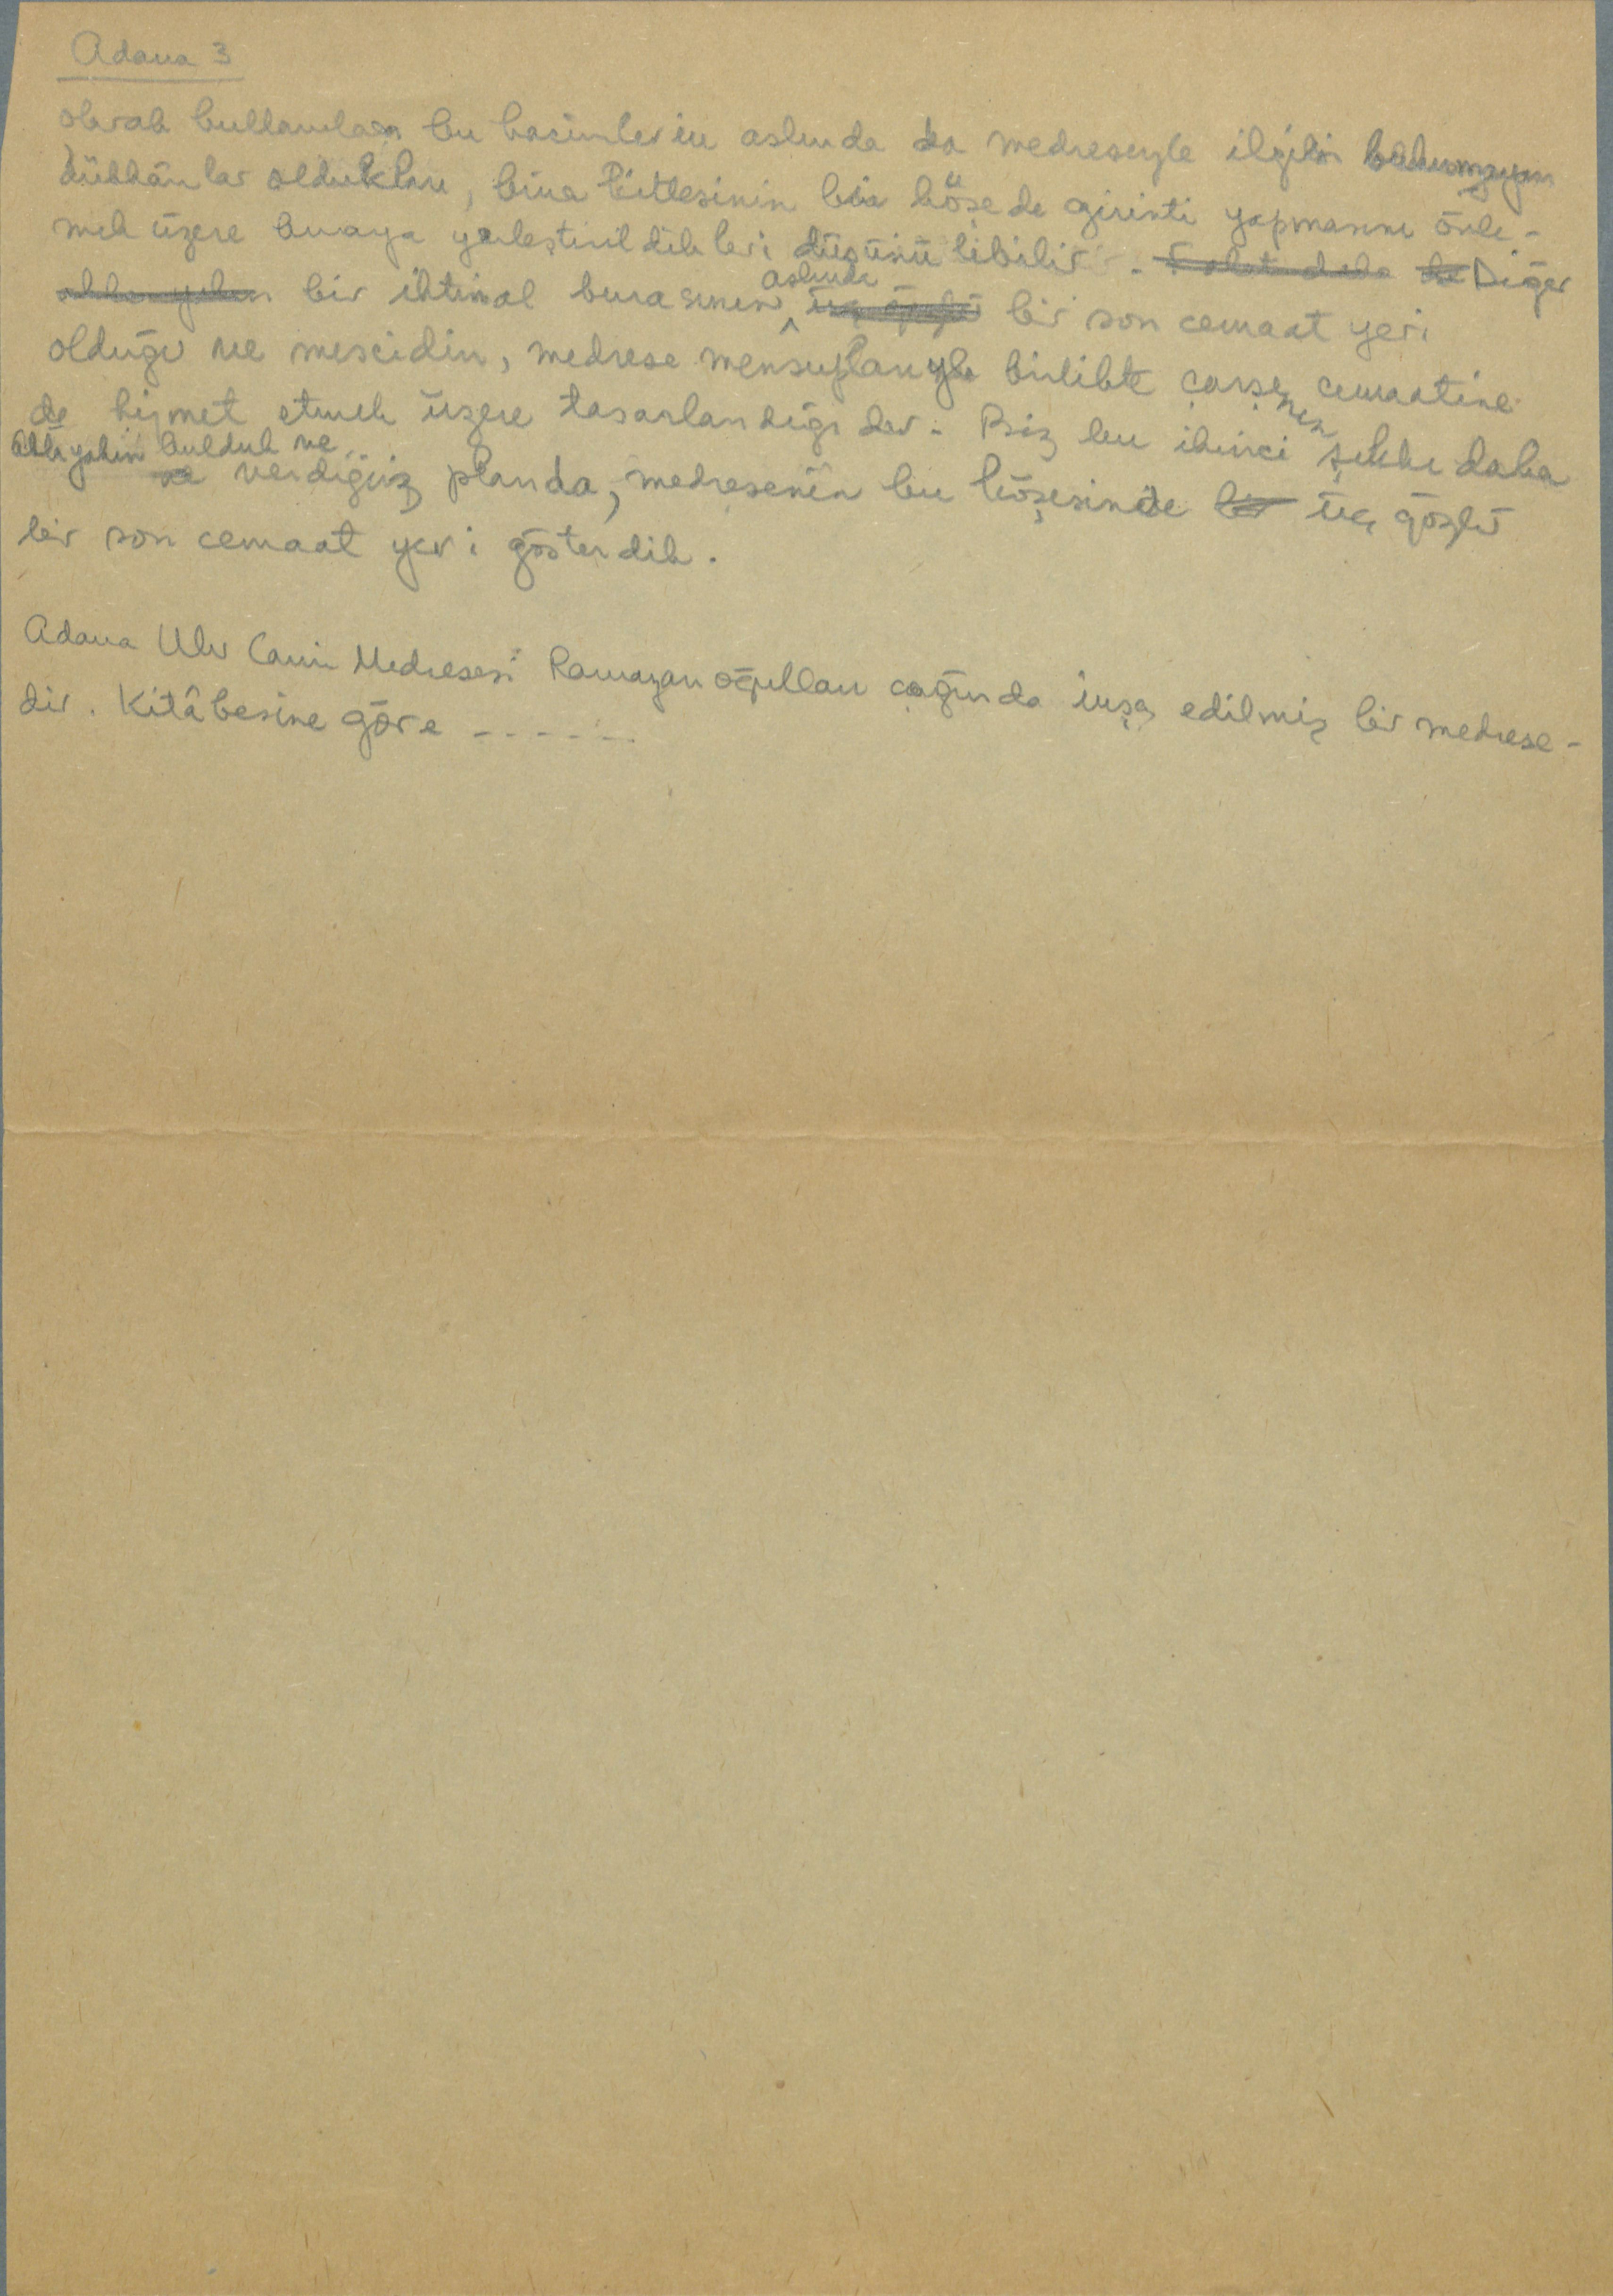 Adana 3
olarak kullanılan bu kısımların aslında da medreseyle ilgisi bulunmayan
dükkânlar oldukları, bina kütlesinin bir köşede girinti yapmasını önle-
mek üzere buraya yerleştirildikleri düşünülebilir. Fakat daha Diğer
akla yakın bir ihtimal burasının aslında üç gözlü bir son cemaat yeri
olduğu ve mescidin, medrese mensuplarıyla birlikte çarşının cemaatine
de hizmet etmek üzere tasarlandığıdır. Biz bu ikinci şekli daha
akla yakın bulduk ve verdiğimiz planda, medresenin bu köşesinde bir üç gözlü
bir son cemaat yeri gösterdik.
Adana Ulu Camii Medresesi Ramazanoğulları çağında inşa edilmiş bir medrese-
dir. Kitâbesine göre ------